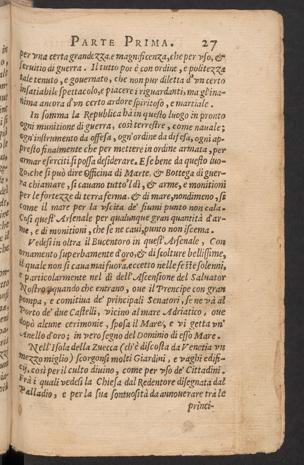 PARTE PRIMA. 27
per vna certa grandezza e magnificenza, che per vso, &
seruitio di guerra. Il tutto poi è con ordine, e politezza
tale tenuto, e gouernato, che non pur diletta d'vn certo
insatiabile spettacolo, e piacere i riguardanti, ma gl'ina-
nima ancora d'vn certo ardore spiritoso, e martiale.
In somma la Republica hà in questo luogo in pronto
ogni munitione di guerra, così terrestre, come nauale;
ogn'instrumento da offesa, ogni ordine da difesa, ogni ap-
presto finalmente che per mettere in ordine armata, per
armar eserciti si possa desiderare. E se bene da questo luo-
go, che si può dire Officina di Marte, & Bottega di guer-
ra chiamare, si cauano tutto'l dì, & arme, e monitioni
per le fortezze di terra ferma, & di mare, nondimeno, sì
come il mare per la vscita de' fiumi punto non cala
Così quest'Arsenale per qualunque gran quantità d'ar-
me, e di monitioni, che se ne caui, punto non iscema.
Vedesi in oltra il Bucentoro in quest'Arsenale, Con
ornamento superbamente d'oro, & di scolture bellissime,
il quale non si caua mai fuora, eccetto nelle feste solenni,
e particolarmente nel dì dell'Ascensione del Saluator
Nostro, quando che entrano, oue il Prencipe con gran
pompa, e comitiua de' principali Senatori, se ne và al
Porto de' due Castelli, vicino al mare Adriatico, oue
dopò alcune cerimonie, sposa il Mare, e vi getta vn'
Anello d'oro; in vero segno del Dominio di esso Mare.
Nell'Isola della Zuecca (ch'è discosta da Venetia vn
mezzo miglio) scorgonsi molti Giardini, e vaghi edifi-
cij, così per il culto diuino, come per vso de' Cittadini.
Frà i quali vedesi la Chiesa dal Redentore disegnata dal
Palladio, e per la sua sontuosità da annouerare trà le
princi-